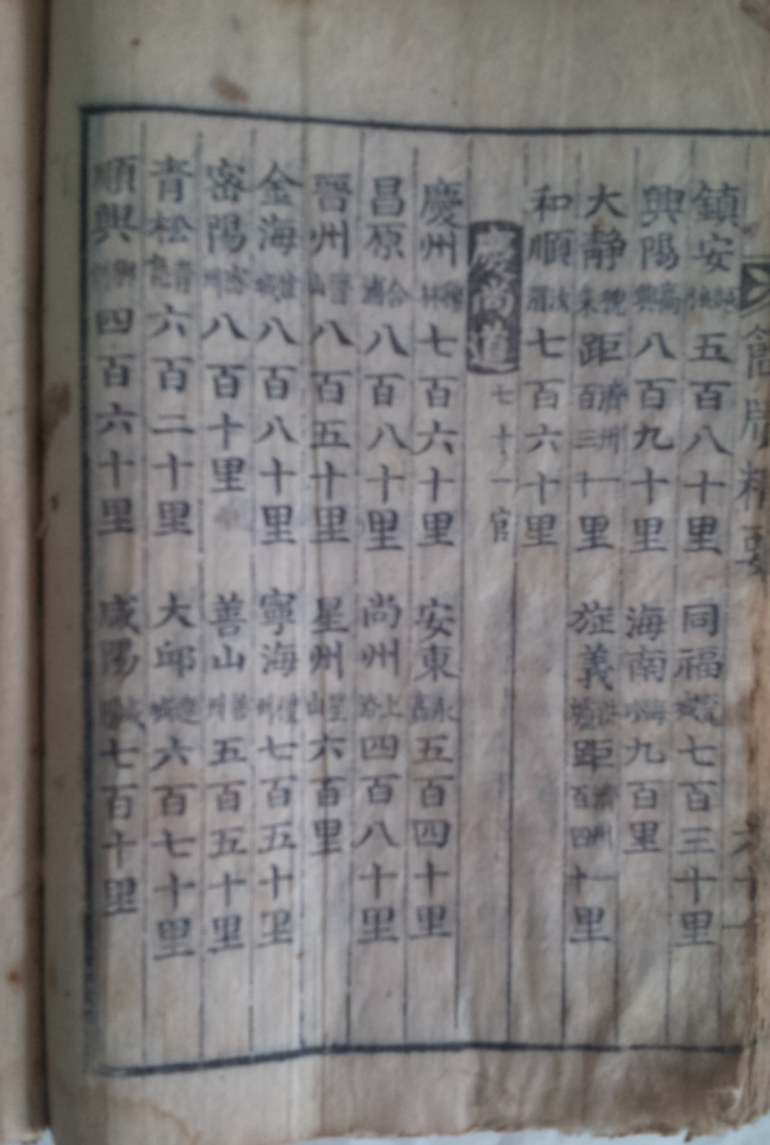 鎮安五百八十里 同福七百三十里
興陽高興八百九十里 海南九百里
大靜距濟州百三十里 旌義距濟州百四十里
和順七百六十里
慶尚道 七十一官
慶州七百六十里 安東永嘉五百四十里
昌原合浦八百八十里 尚州上洛四百八十里
晉州晉山八百五十里 星州星山六百里
金海盆城八百八十里 寧海禮州七百五十里
密陽密州八百十里 善山善州五百五十里
青松六百二十里 大邱達城六百七十里
順興四百六十里 咸陽七百十里